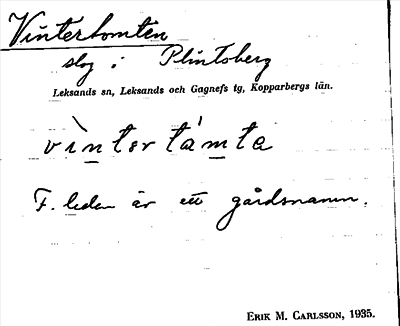 Vintertomten
slog i Plintsberg
Leksands sn, Leksands och Gagnefs tg, Kopparbergs län.
vìntər támta
F. leden är ett gårdsnamn.
ERIK M. CARLSSON, 1935.